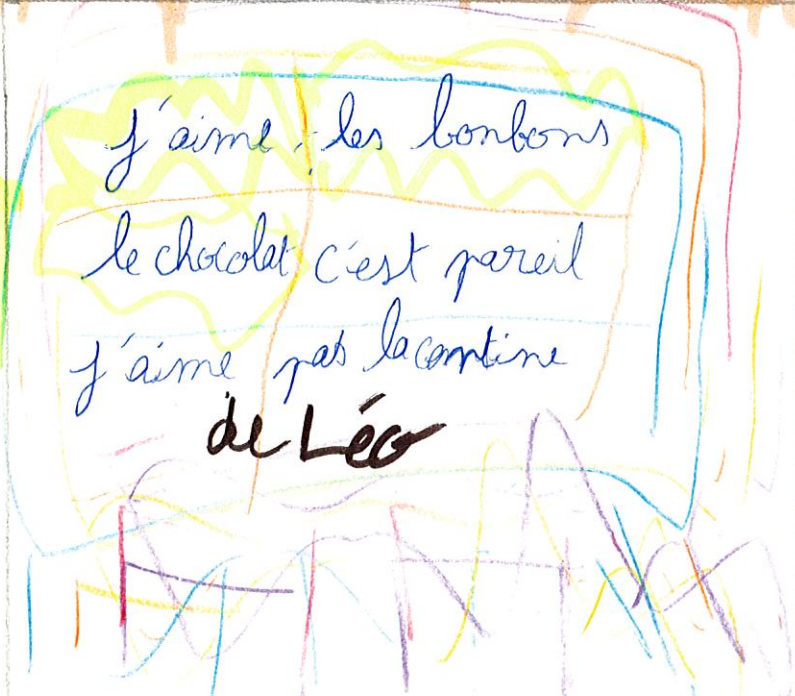 j'aime les bonbons
le chocolat c'est pareil
j'aime pas la comptine
de Léo